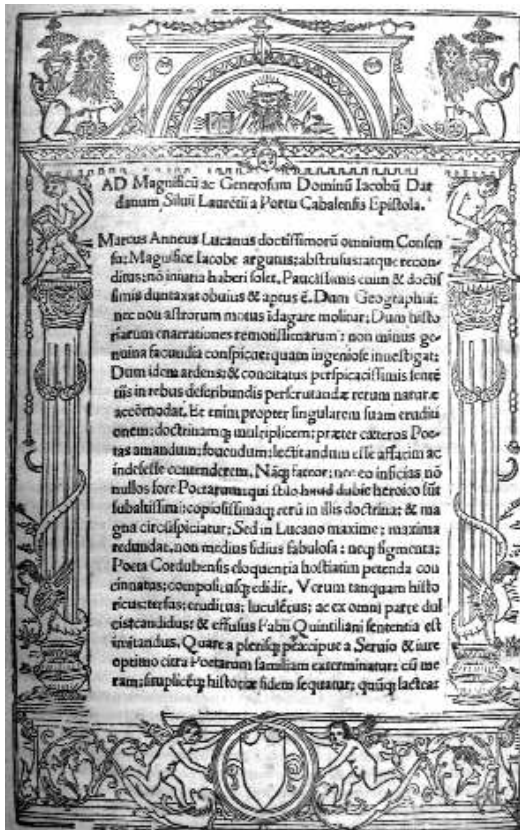 AD Magnificū ac Generosum Dominū Iacobū Dar
danum Siluii Laurētii a Portu Cabalensis Epistola.
Marcus Anneus Lucanus doctissimorū omnium Consen
su: Magnifice Iacobe argutus: abstrusus: atque recon
ditus: nō iniuria haberi solet. Paucissimis enim & doctis
simis duntaxat obuius & aptus ē. Dum Geographiā:
nec non astrorum motus īdagare molitur: Dum histo
riarum enarrationes remotissimarum: non minus ge
nuina facundia conspicue: quam ingeniose inuestigat:
Dum idem ardens: & concitatus perspicacissimis sentē
tiis in rebus describundis perscrutandæ rerum naturæ
accōmodat. Et enim propter singularem suam eruditi
onem: doctrinamq; multiplicem: præter cæteros Poe-
tas amandum: fouendum: lectitandum esse affatim ac
indefesse contenderem. Nāq; fateor: nec eo inficias nō
nullos fore Poetarum: qui stilo haud dubie heroico sūt
copiosissimaq; rerū in illis doctrina: & ma
gna circūspiciatur: Sed in Lucano maxime: maxima
redundat. non medius fidius fabulosa: neq; figmenta:
Poeta Cordubensis eloquentia hostiatim petenda con
cinnatus: compositusq; edidit. Verum tanquam histo
ricus: tersus: eruditus: luculētus: ac ex omni parte dul
cis: candidus: & effusus Fabii Quintiliani sententia est
imitandus. Quare a plerisq; præcipue a Seruio & iure
optimo citra Poetarum familiam exterminatur: cū me
ram: simplicēq; historiæ fidem sequatur: quūq; lacteat